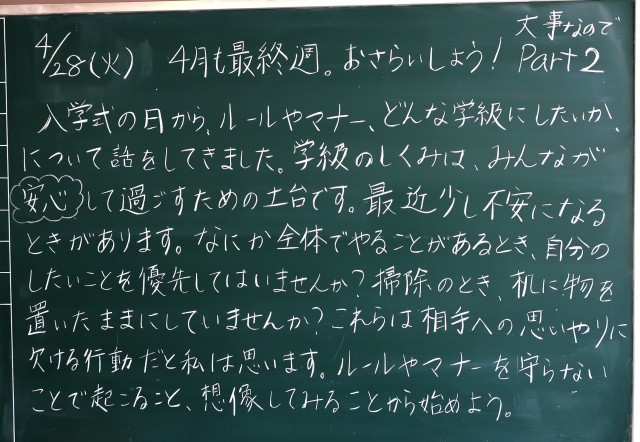 大事なので
4/28(火) 4月も最終週。おさらいしよう! Part 2
入学式の日から、ルールやマナー、どんな学級にしたいか、
について話をしてきました。学級のしくみは、みんなが
安心して過ごすための土台です。最近少し不安になる
ときがあります。なにか全体でやることがあるとき、自分の
したいことを優先してはいませんか?掃除のとき、机に物を
置いたままにしていませんか?これらは相手への思いやりに
欠ける行動だと私は思います。ルールやマナーを守らない
ことで起こること、想像してみることから始めよう。